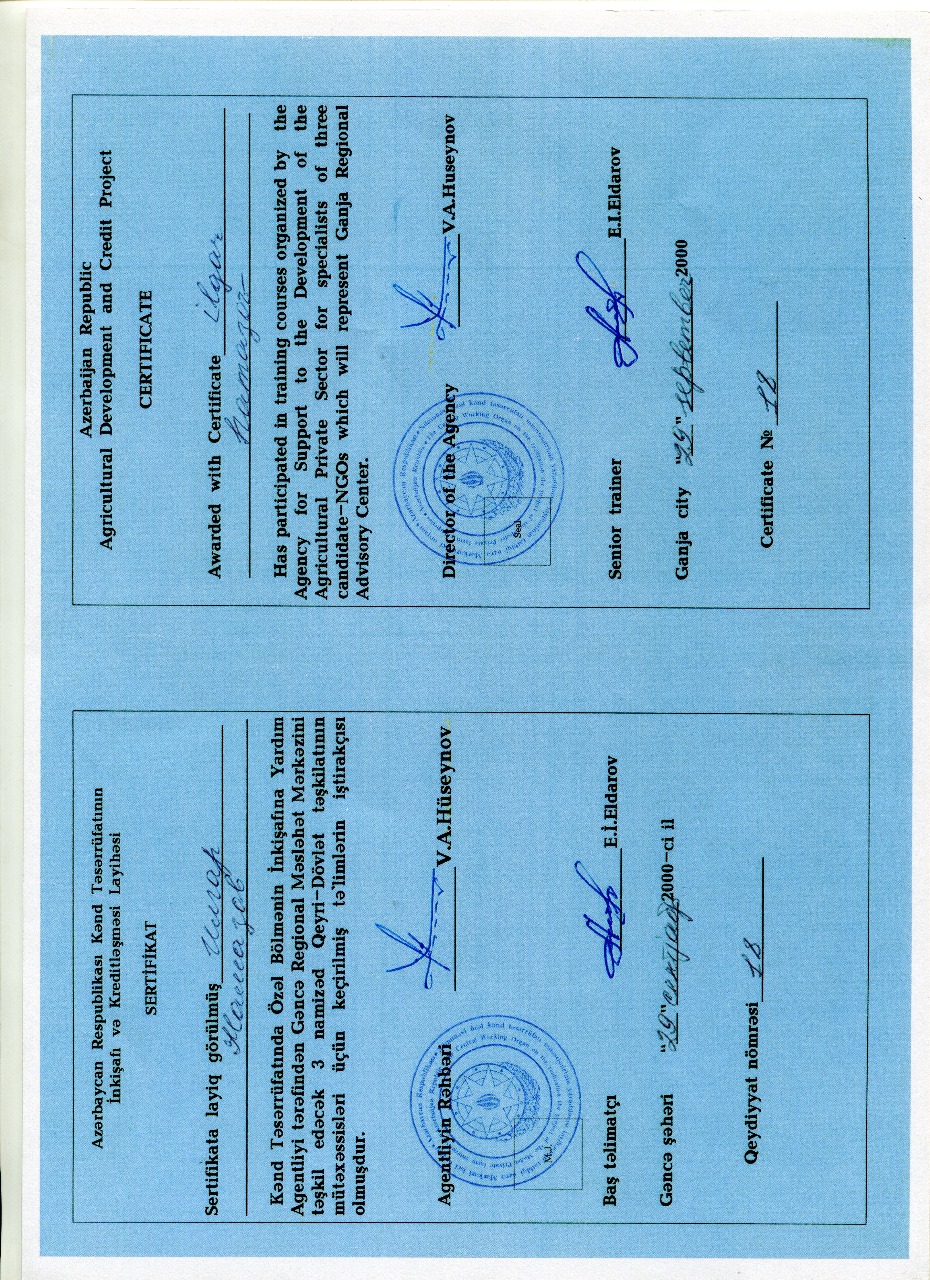 Azərbaycan Respublikası Kənd Təsərrüfatının
İnkişafı və Kreditləşməsi Layihəsi
SERTİFİKAT
Sertifikata layiq görülmüş
Kənd Təsərrüfatında Özəl Bölmənin İnkişafına Yardım
Agentliyi tərəfindən Gəncə Regional Məsləhət Mərkəzini
təşkil edəcək 3 namizəd Qeyri-Dövlət təşkilatının
mütəxəssisləri üçün keçirilmiş tə'limlərin iştirakçısı
olmuşdur.
Agentliyin Rəhbəri V.A.Hüseynov
M.J.
Baş təlimatçı E.İ.Eldarov
Gəncə şəhəri "29" 2000-ci il
Qeydiyyat nömrəsi 18
Azerbaijan Republic
Agricultural Development and Credit Project
CERTIFICATE
Awarded with Certificate Ilgar
Has participated in training courses organized by the
Agency for Support to the Development of the
Agricultural Private Sector for specialists of three
candidate-NGOs which will represent Ganja Regional
Advisory Center.
Director of the Agency V.A.Huseynov
Seal
Senior trainer E.I.Eldarov
Ganja city "29" september 2000
Certificate № 18